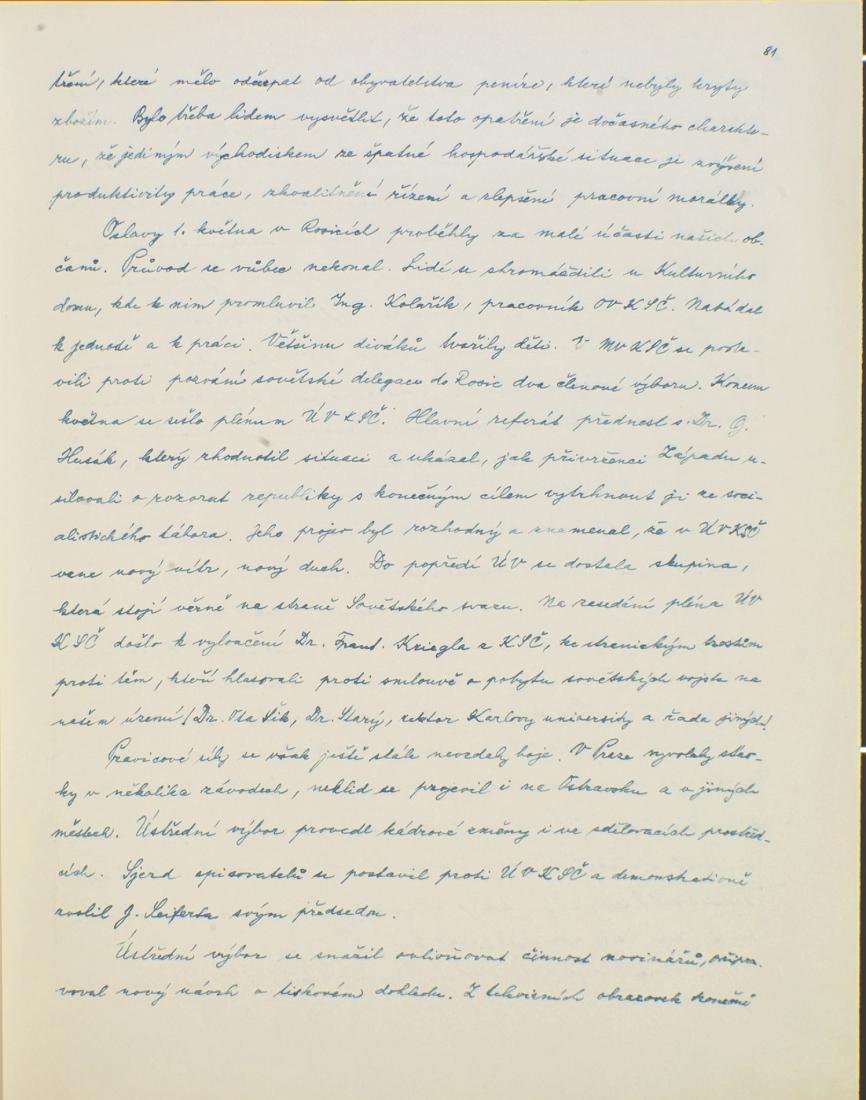 81
tření, které mělo odčerpat od obyvatelstva peníze, které nebyly kryty
zbožím. Bylo třeba lidem vysvětlit, že toto opatření je dočasného charakte-
ru, že jediným východiskem ze špatné hospodářské situace je zvýšení
produktivity práce, zkvalitnění řízení a zlepšení pracovní morálky.
Oslavy 1. května v Rosicích proběhly za malé účasti našich ob-
čanů. Průvod se vůbec nekonal. Lidé se shromáždili u Kulturního
domu, kde k nim promluvil Ing. Kolařík, pracovník OV KSČ. Nabádal
k jednotě a k práci. Většinu diváků tvořily děti. V MV KSČ se posta-
vili proti pozvání sovětské delegace do Rosic dva členové výboru. Koncem
května se sešlo plénum ÚV KSČ. Hlavní referát přednesl s. Dr. G.
Husák, který zhodnotil situaci a ukázal, jak přívrženci Západu u-
silovali o rozvrat republiky s konečným cílem vytrhnout ji ze soci-
alistického tábora. Jeho projev byl rozhodný a znamenal, že v ÚV KSČ
vane nový vítr, nový duch. Do popředí ÚV se dostala skupina,
která stojí věrně na straně Sovětského svazu. Na zasedání pléna ÚV
KSČ došlo k vyloučení Dr. Frant. Kriegla z KSČ, ke stranickým trestům
proti těm, kteří hlasovali proti smlouvě o pobytu sovětských vojsk na
našem území (Dr. Ota Šik, Dr. Starý, rektor Karlovy university a řada jiných)
Pravicové síly se však ještě stále nevzdaly boje. V Praze vyvolaly stáv-
ky v několika závodech, neklid se projevil i na Ostravsku a v jiných
městech. Ústřední výbor provedl kádrové změny i ve sdělovacích prostřed-
cích. Sjezd spisovatelů se postavil proti ÚV KSČ a demonstrativně
zvolil J. Seiferta svým předsedou.
Ústřední výbor se snažil ovlivňovat činnost novinářů,
voval nový návrh o tiskovém dohledu. Z televizních obrazovek konečně